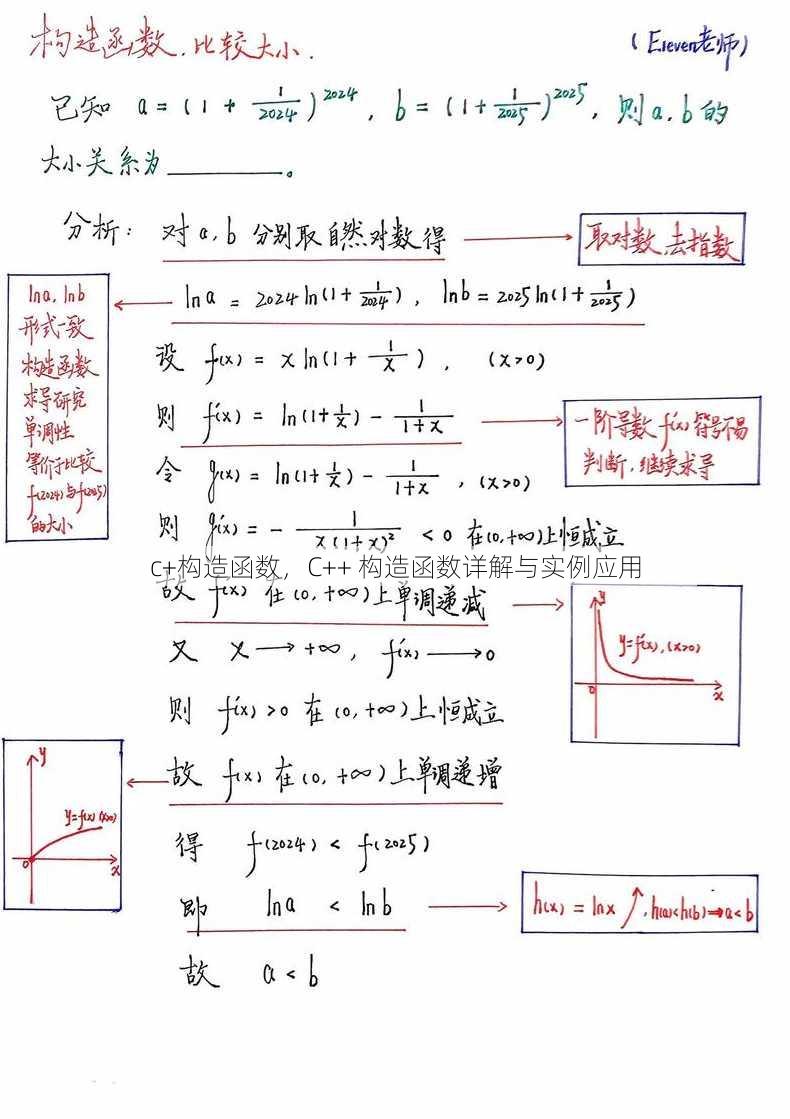 构造函数.比较大小. (Eleven老师)
已知 a = (1 + 1/2024)^2024, b = (1 + 1/2025)^2025, 则a,b的
大小关系为________。
分析: 对a,b分别取自然对数得 → 取对数,去指数
lna = 2024ln(1+1/2024), lnb = 2025ln(1+1/2025)
lna, lnb
形式一致
构造函数
求导研究
单调性
等价于比较
f(2024)与f(2025)
的大小
设 f(x) = xln(1+1/x), (x>0)
则 f'(x) = ln(1+1/x) - 1/(1+x)
一阶导数f'(x)符号不易
判断,继续求导
令 g(x) = ln(1+1/x) - 1/(1+x), (x>0)
则 g'(x) = - 1/(x(1+x)²) < 0 在(0,+∞)上恒成立
c+构造函数，C++ 构造函数详解与实例应用
故 f'(x) 在(0,+∞)上单调递减
y
y=f'(x),(x>0)
0
x
又 x → +∞, f'(x) → 0
则 f'(x)>0 在(0,+∞)上恒成立
故 f(x)在(0,+∞)上单调递增
y
y=f(x)(x>0)
0
x
得 f(2024) < f(2025)
即 lna < lnb → h(x) = lnx ↗, h(a)<h(b)⇒a<b
故 a < b